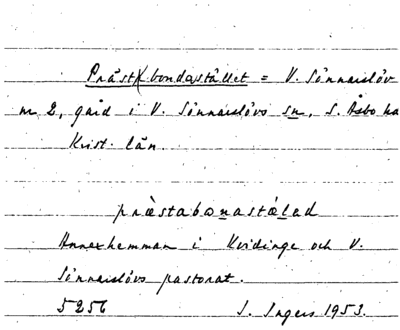 Präst(bondastället = V. Sönnarslöv
nr 2, gård i V. Sönnarslövs sn, S. Åsbo hd
Krist. län.
præstabonastælad
Annexhemman i Kvidinge och V.
Sönnarslövs pastorat.
5256 I. Ingers 1953.